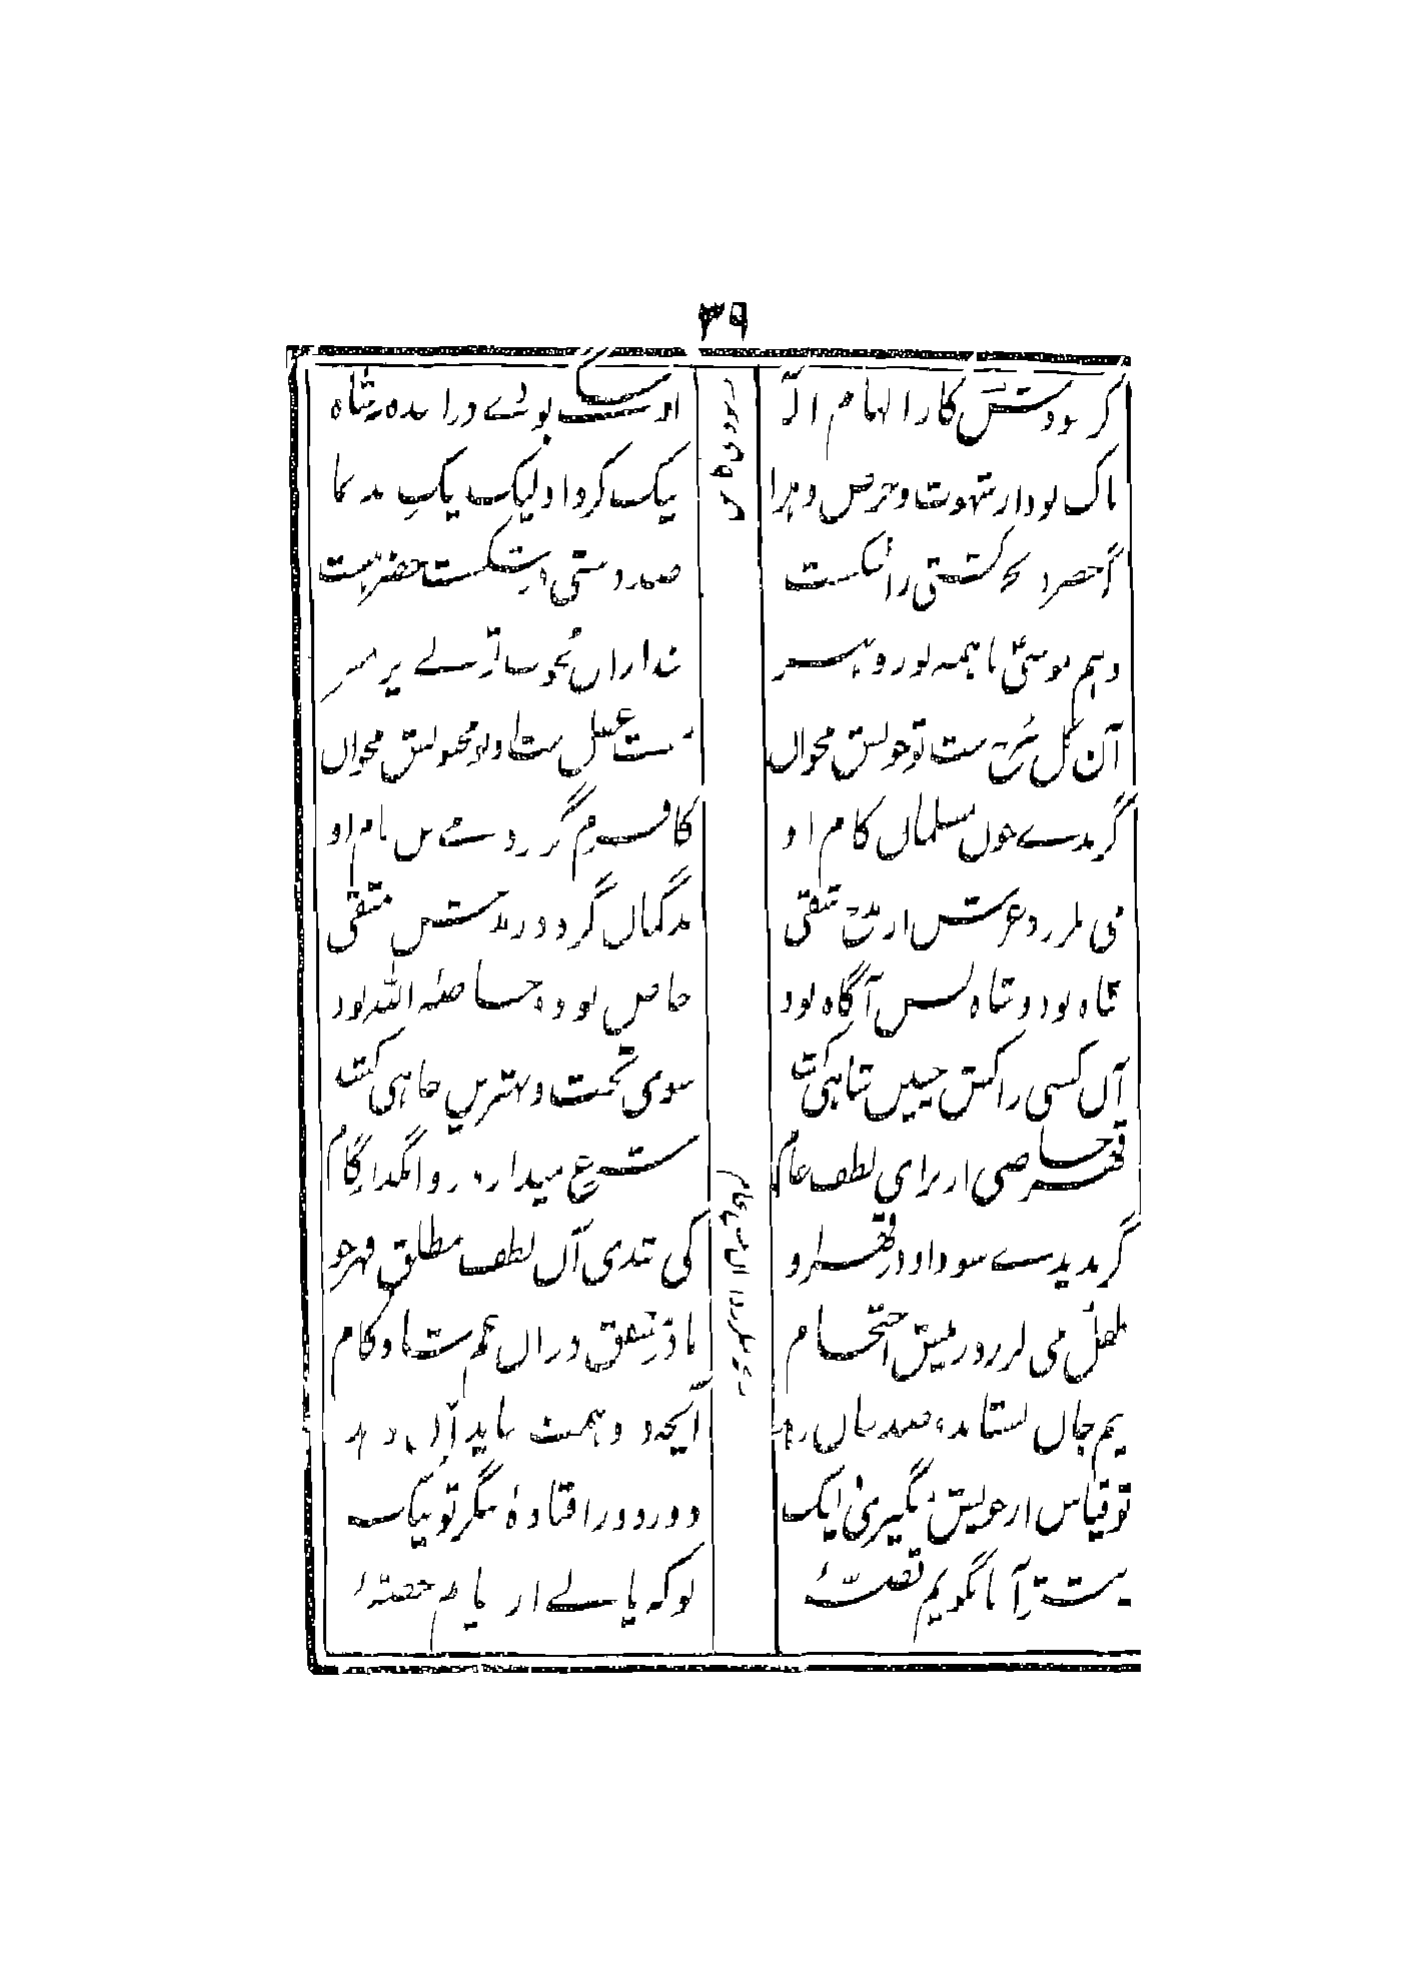 ۳۹
گر نبودش کار الهام اله او سگے بودے درانندہ نہ شاہ
پاک بود از شہوت و حرص و ہوا نیک کرد او لیک نیک بد نما
گر خضر در بحر کشتی را شکست صد درستی در شکست خضر ہست
وہم موسیٰ با ہمہ نور و ہنر شد ازاں محجوب تو بے پر مپر
آن گل سرخ ست تو خونش مخواں مست عقل ست او تو مجنونش مخواں
گر بدے خون مسلماں کام او کافرم گر بردمے من نام او
می بلرزد عرش از مدح شقی بدگماں گردد ز مدحش متقی
شاہ بود و شاہ بس آگاہ بود خاص بود و خاصۂ اللہ بود
آں کسی را کش چنیں شاہی کشد سوی تخت و بہترین جاہی کشد
قہر خاصی از برای لطف عام شرع میدارد روا بگذار گام
گر ندیدے سود او در قہر او کی شدی آں لطف مطلق قہر جو
طفل می لرزد ز نیش احتجام مادر مشفق دراں غم شادکام
نیم جاں بستاند و صد جاں دہد آنچہ در وہمت نیاید آں دہد
تو قیاس از خویش میگیری و لیک دور دور افتادۂ بنگر تو نیک
پیشتر آ تا بگویم قصۂ بوکہ یابے از بیانم حصۂ